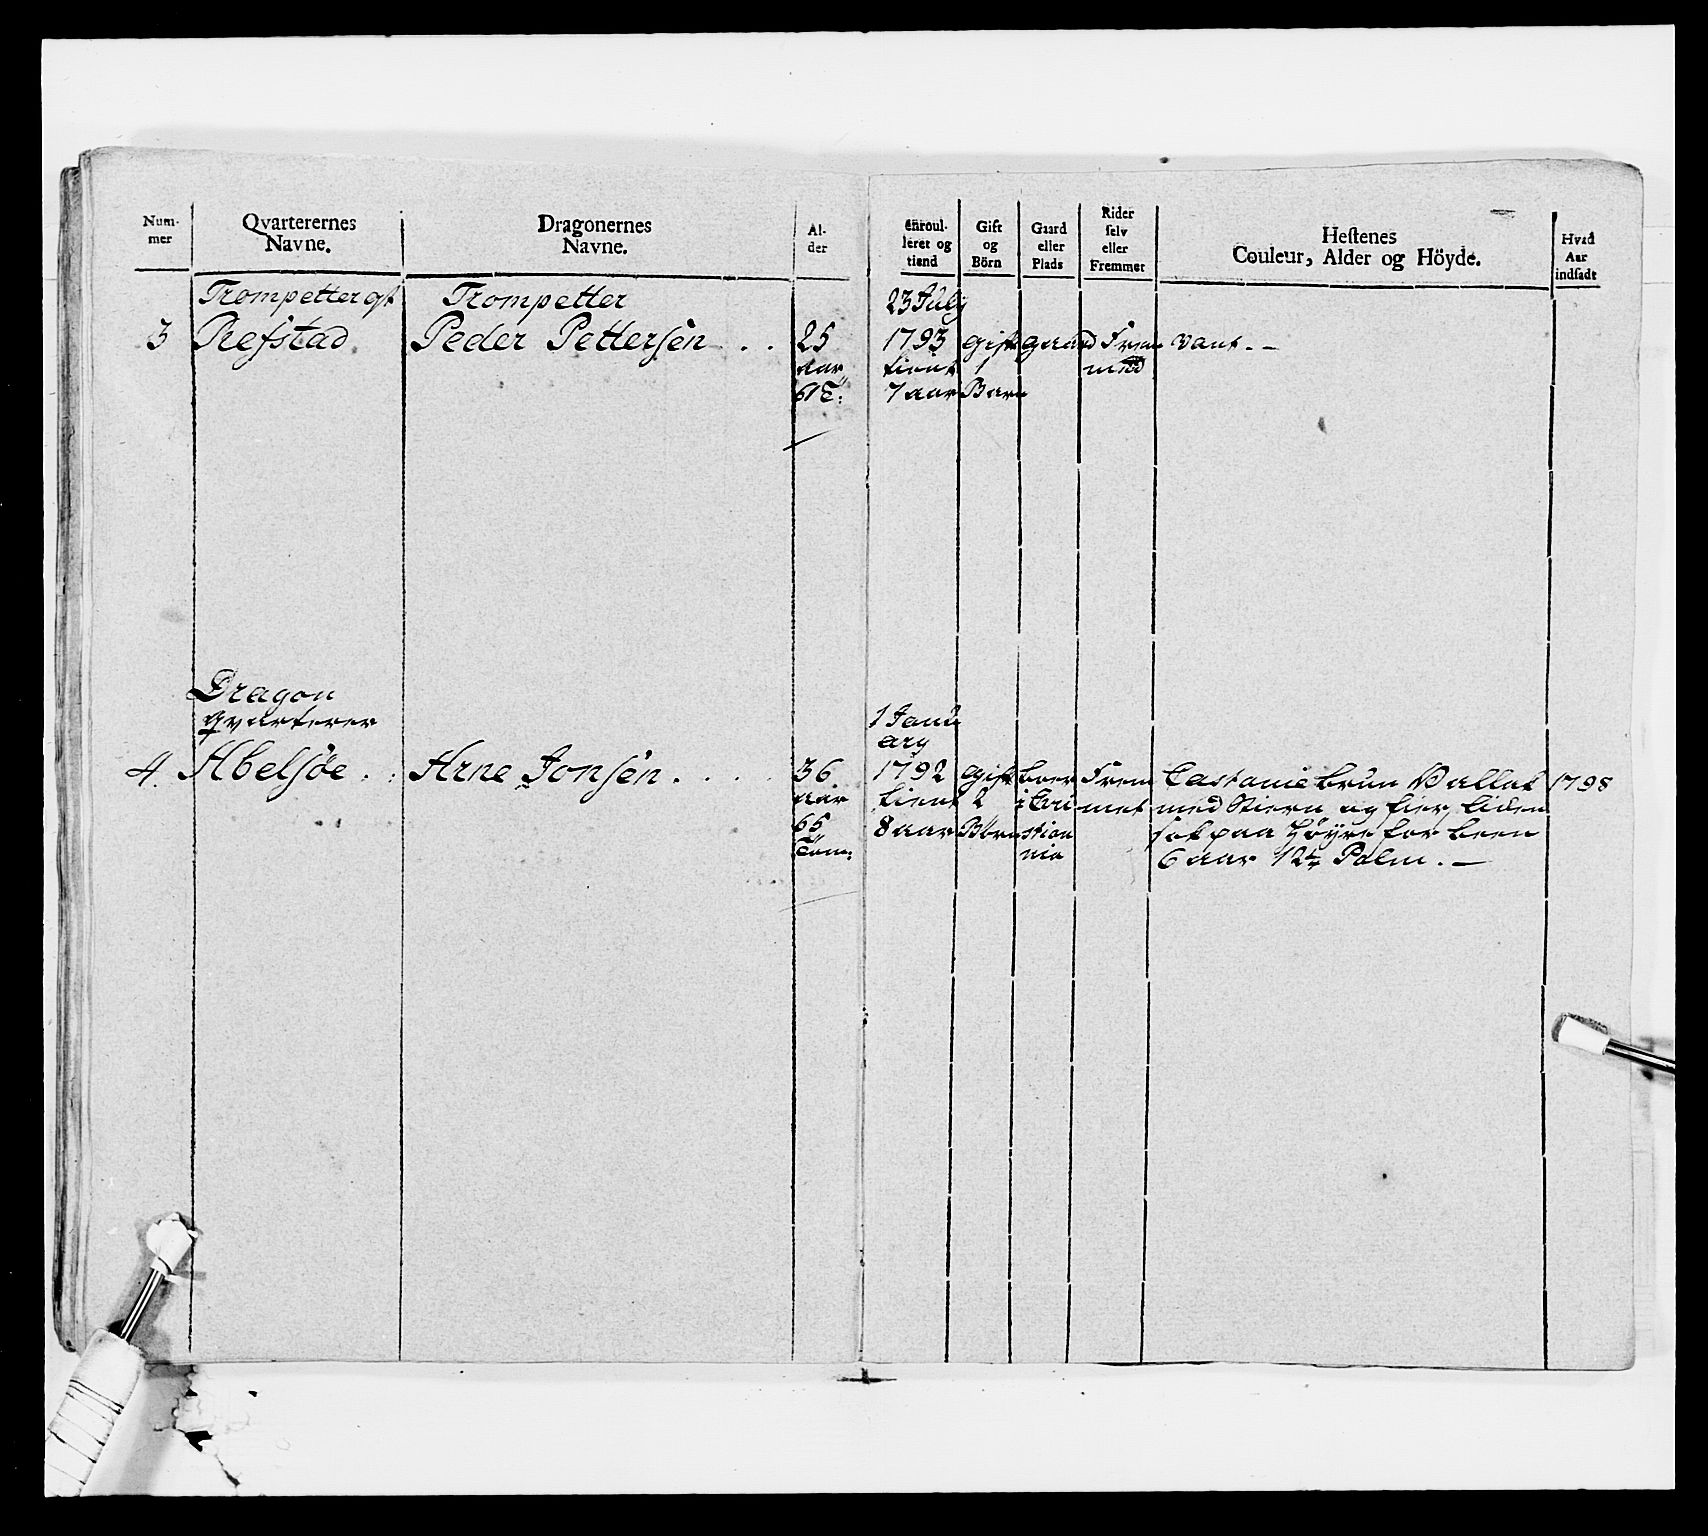 Num-
mer
Qvarterernes
Navne.
Dragonernes
Navne.
Al-
der
Enroul-
leret og
tiend
Gift
og
Börn
Gaard
eller
Plads
Rider
selv
eller
Fremmet
Hestenes
Couleur, Alder og Höyde.
Hvad
Aar
indsadt
Trompetter qt
3 Refstad
Trompetter
Peder Pettersen . .
25
aar
61 T:
23 July
1793
tient
7 aar
gift
1
Barn
gaard
Frem
med
vant. -
Dragon
qvarterer
4. Abelsøe . :
Arne Jonsen . . . .
36
aar
65
Tom:
1 Janu
ary
1792
tient
8 aar
gift
2
Börn
boer
i Cri
stian
nia
Frem
met
Castanie brun Vallak
med Stiern og liden
paa Høyre for been
6 aar 12 Palm. -
1798